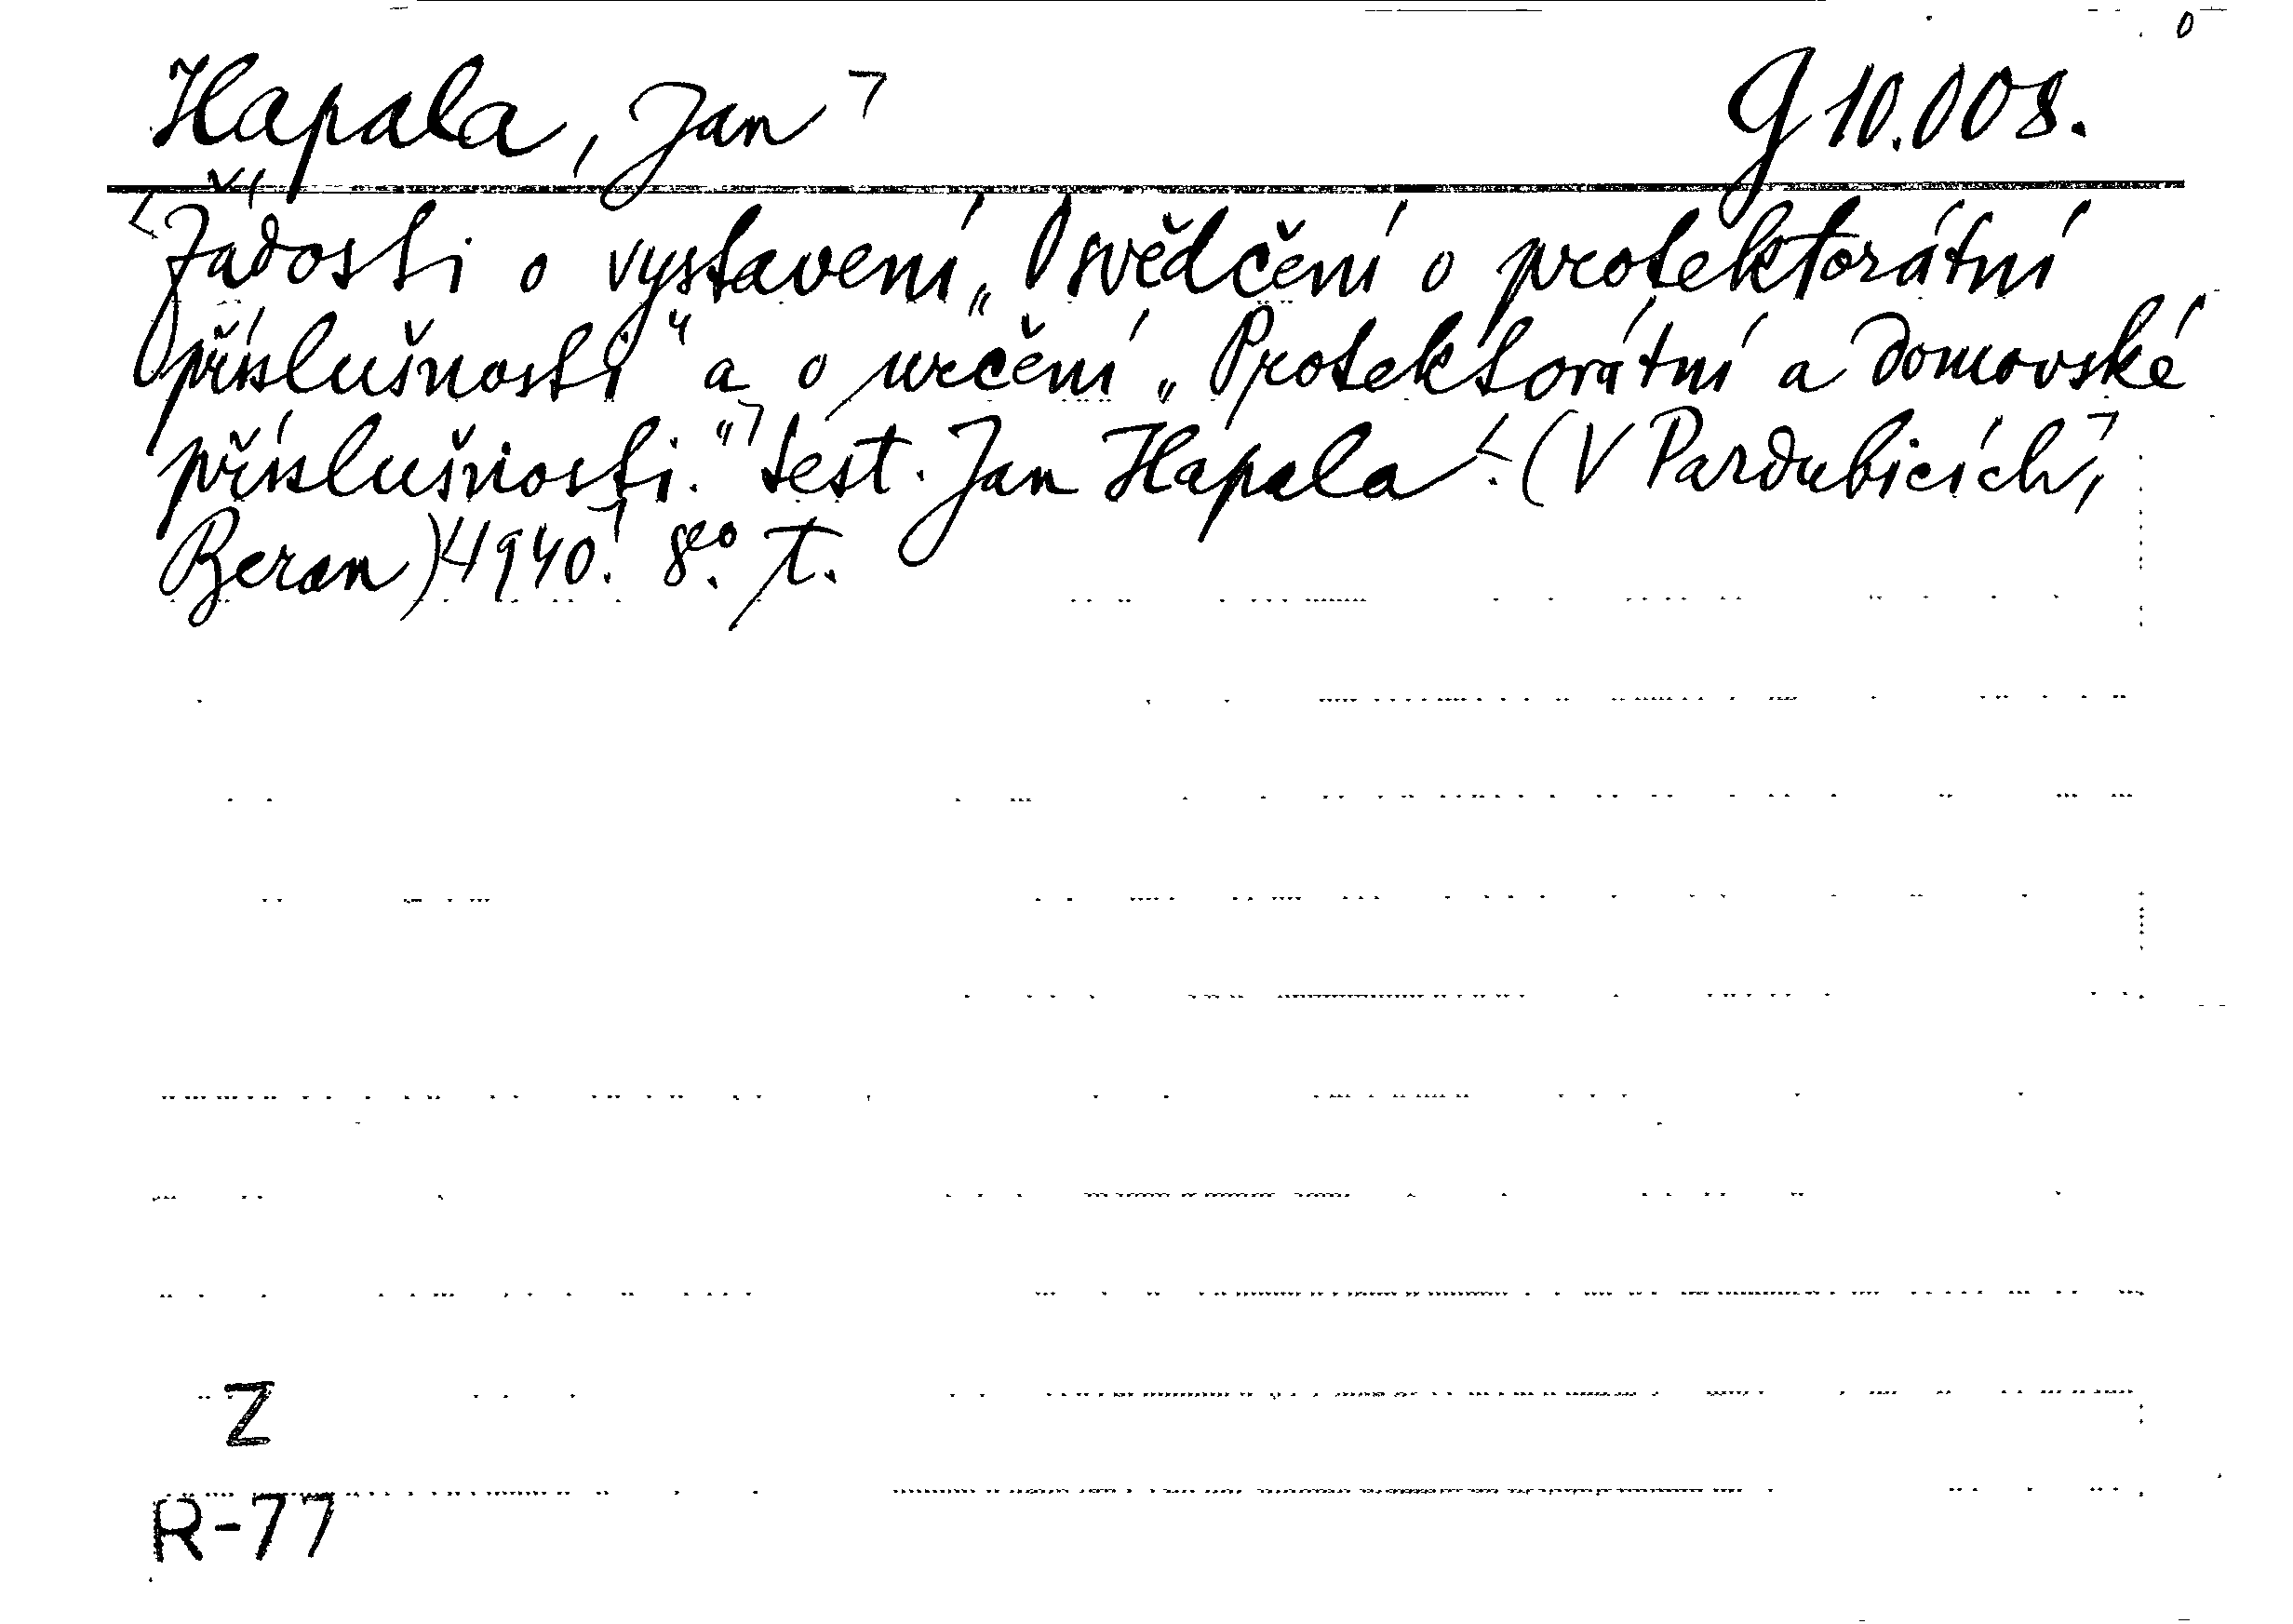 Hapala, Jan G 10.008.
Žádosti o vystavení „Osvědčení o protektorátní
příslušnosti“ a o určení „Protektorátní a domovské
příslušnosti.“ Sest. Jan Hapala. (V Pardubicích,
Beran) 1940. 8°. T.
Z
R-77